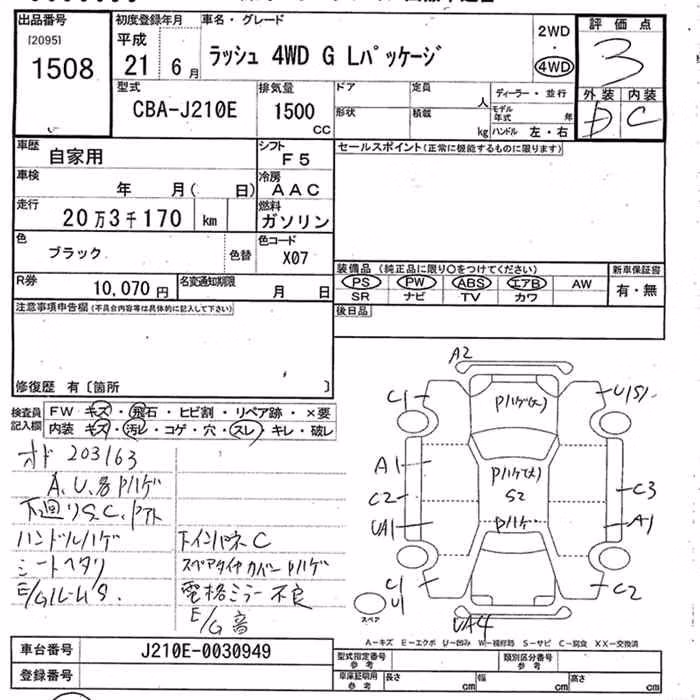 出品番号
[2095]
1508
初度登録年月
平成
21 6月
車名・グレード
ラッシュ 4WD G Lパッケージ
2WD
・
4WD
評価点
3
外装 内装
D C
型式
CBA-J210E
排気量
1500
CC
ドア
定員
人
形状
積載
kg
ディーラー・並行
モデル年式 年
ハンドル 左・右
車歴
自家用
シフト
F5
車検
年 月( 日)
冷房
AAC
走行
20万3千170 km
燃料
ガソリン
色
ブラック
色替
色コード
X07
R券
10,070円
名変通知期限
月 日
セールスポイント(正常に機能するものに限ります)
装備品 (純正品に限り○をつけてください)
PS PW ABS エアB AW
SR ナビ TV カワ
新車保証書
有・無
後日品
注意事項申告欄(不具合内容等は具体的に記入して下さい)
修復歴 有〔箇所 〕
検査員
記入欄
FW キズ・飛石・ヒビ割・リペア跡・×要
内装 キズ・汚レ・コゲ・穴・スレ・キレ・破レ
オド 203163
A、U、多 Pハゲ
下廻りS、C、
ハンドルハゲ
シートヘタリ
インパネC
スペアタイヤカバーPハゲ
電格ミラー不良
E/G音
A2
C1
Pハゲ(大)
U1(S)
A1
C2
UA1
Pハゲ(大)
S2
Pハゲ
C3
A1
C1
U1
C2
UA4
スペア
A-キズ E-エクボ U-凹み W-補修跡 S-サビ C-腐食 XX-交換済
車台番号
J210E-0030949
登録番号
型式指定番号
参考
類別区分番号
参考
車庫証明用
参考
長さ cm
幅 cm
高さ cm